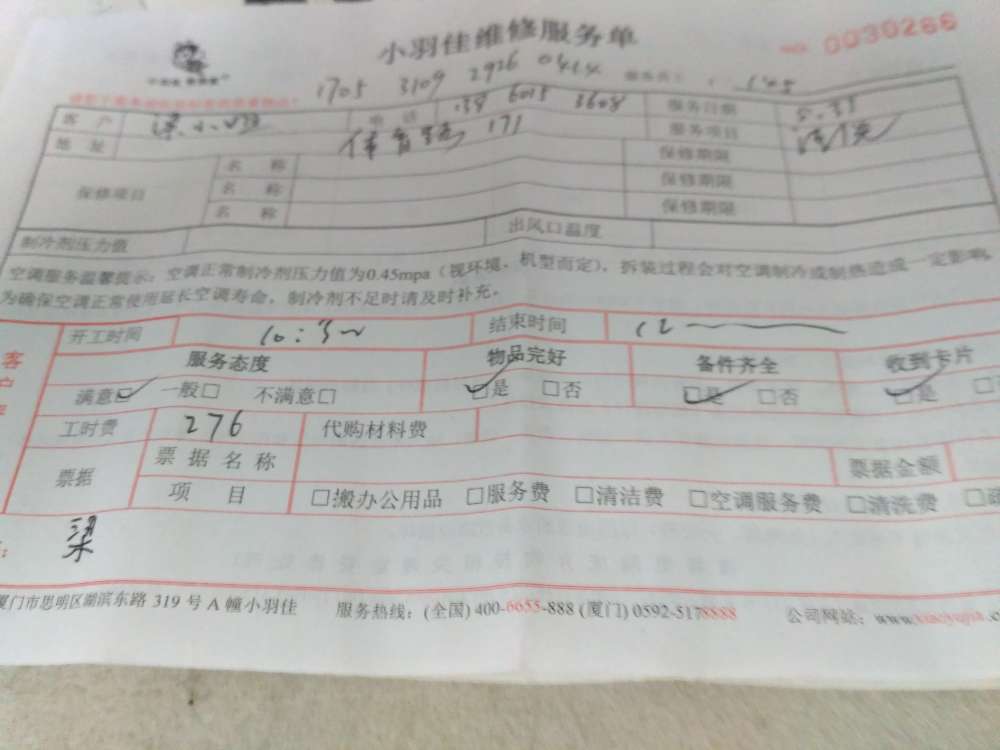 小羽佳维修服务单
0030266
1705 3109 2926 0414
客 户 梁小 电 话 6015 3608 服务日期
地 址 体育路 171 服务项目 清洗
保修项目 名 称 保修期限
名 称 保修期限
名 称 保修期限
制冷剂压力值 出风口温度
空调服务温馨提示：空调正常制冷剂压力值为0.45mpa（视环境、机型而定），拆装过程会对空调制冷或制热造成一定影响，
为确保空调正常使用延长空调寿命，制冷剂不足时请及时补充。
开工时间 10:30 结束时间 12
服务态度 物品完好 备件齐全 收到卡片
满意□ 一般□ 不满意□ □是 □否 □是 □否 □是
工时费 276 代购材料费
票据 票 据 名 称 票据金额
项 目 □搬办公用品 □服务费 □清洁费 □空调服务费 □清洗费
梁
厦门市思明区湖滨东路 319 号 A 幢小羽佳 服务热线：(全国) 400-6655-888 (厦门) 0592-5178888 公司网站：www.xiaoyujia.c